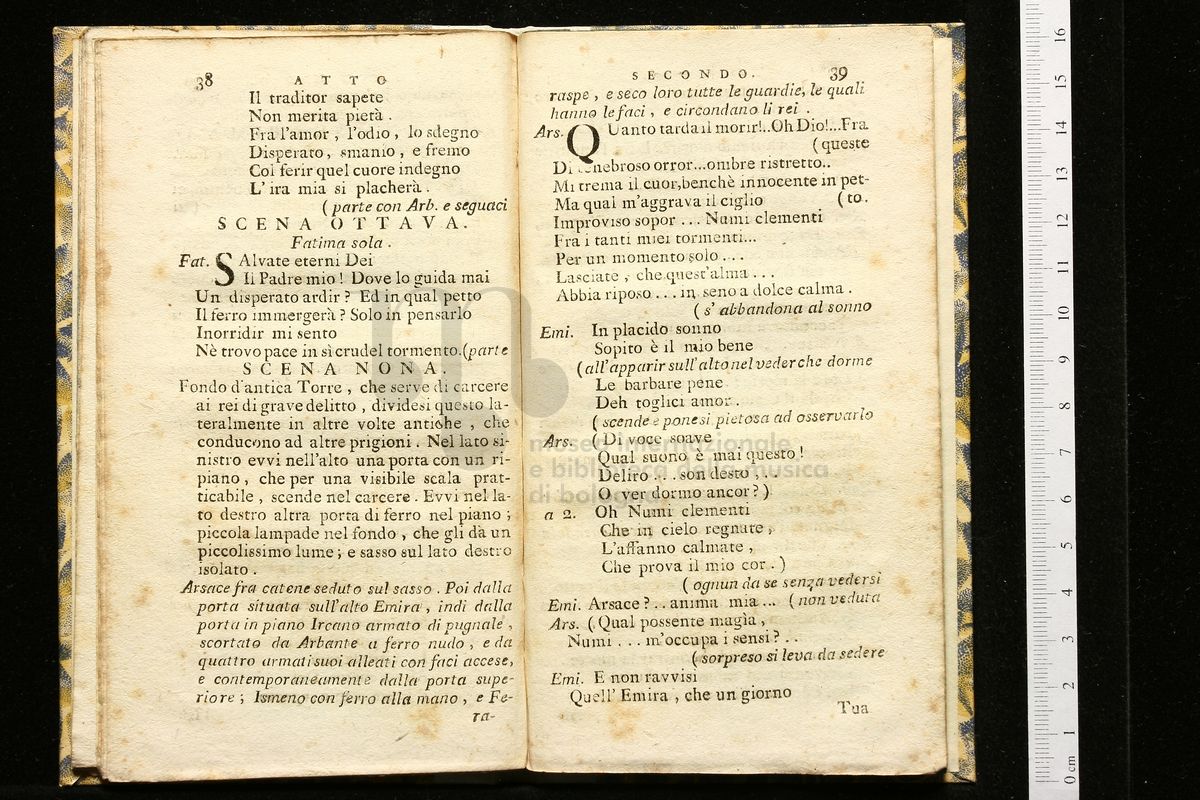 38 ATTO
Il traditor sapete
Non merita pietà .
Fra l'amor , l'odio , lo sdegno
Disperato , smanio , e fremo
Col ferir quel cuore indegno
L' ira mia si placherà .
( parte con Arb. e seguaci
SCENA OTTAVA.
Fatima sola .
Fat. SAlvate eterni Dei
Il Padre mio ! Dove lo guida mai
Un disperato ardir ? Ed in qual petto
Il ferro immergerà ? Solo in pensarlo
Inorridir mi sento
Nè trovo pace in sì crudel tormento.(parte
SCENA NONA.
Fondo d'antica Torre , che serve di carcere
ai rei di grave delitto , dividesi questo la-
teralmente in altre volte antiche , che
conducono ad altre prigioni . Nel lato si-
nistro evvi nell'alto una porta con un ri-
piano , che per una visibile scala prat-
ticabile , scende nel carcere . Evvi nel la-
to destro altra porta di ferro nel piano ;
piccola lampade nel fondo , che gli dà un
piccolissimo lume ; e sasso sul lato destro
isolato .
Arsace fra catene seduto sul sasso . Poi dalla
porta situata sull'alto Emira , indi dalla
porta in piano Ircano armato di pugnale ,
scortato da Arbante a ferro nudo , e da
quattro armati suoi alleati con faci accese,
e contemporaneamente dalla porta supe-
riore ; Ismeno con ferro alla mano , e Fe-
ra-
SECONDO. 39
raspe , e seco loro tutte le guardie, le quali
hanno le faci , e circondano li rei .
Ars. QUanto tarda il morir!..Oh Dio!...Fra
( queste
Di tenebroso orror...ombre ristretto..
Mi trema il cuor,benchè innocente in pet-
Ma qual m'aggrava il ciglio ( to.
Improviso sopor ... Numi clementi
Fra i tanti miei tormenti...
Per un momento solo ...
Lasciate , che quest'alma ...
Abbia riposo ... in seno a dolce calma .
( s' abbandona al sonno
Emi. In placido sonno
Sopito è il mio bene
(all'apparir sull'alto nel veder che dorme
Le barbare pene
Deh toglici amor .
( scende e ponesi pietosa ad osservarlo
Ars. (Di voce soave
Qual suono è mai questo !
Deliro ... son desto ...
O ver dormo ancor ? )
a 2. Oh Numi clementi
Che in cielo regnate ,
L'affanno calmate ,
Che prova il mio cor . )
( ognun da se senza vedersi
Emi. Arsace ? .. anima mia ... ( non veduta
Ars. ( Qual possente magìa ,
Numi ... m'occupa i sensi ? ..
( sorpreso si leva da sedere
Emi. E non ravvisi
Quell' Emira , che un giorno
Tua
museo internazionale
e biblioteca della musica
di bologna
0 cm 1 2 3 4 5 6 7 8 9 10 11 12 13 14 15 16